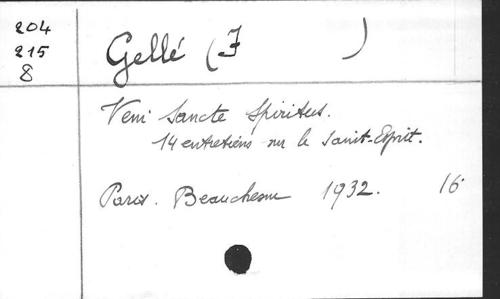 204
215
8
Gellé (J )
Veni Sancte Spiritus.
14 entretiens sur le Saint-Esprit.
Paris. Beauchesne 1932. 16°